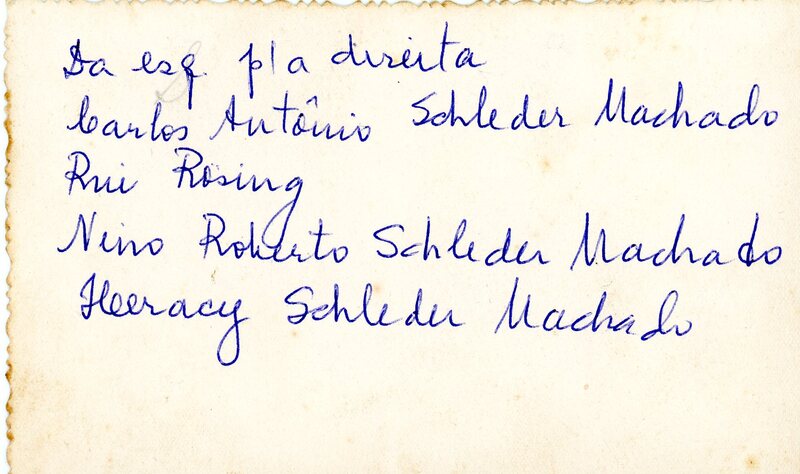 Da esq. p/a direita
Carlos Antônio Schleder Machado
Rui Rosing
Nino Roberto Schleder Machado
Heracy Schleder Machado